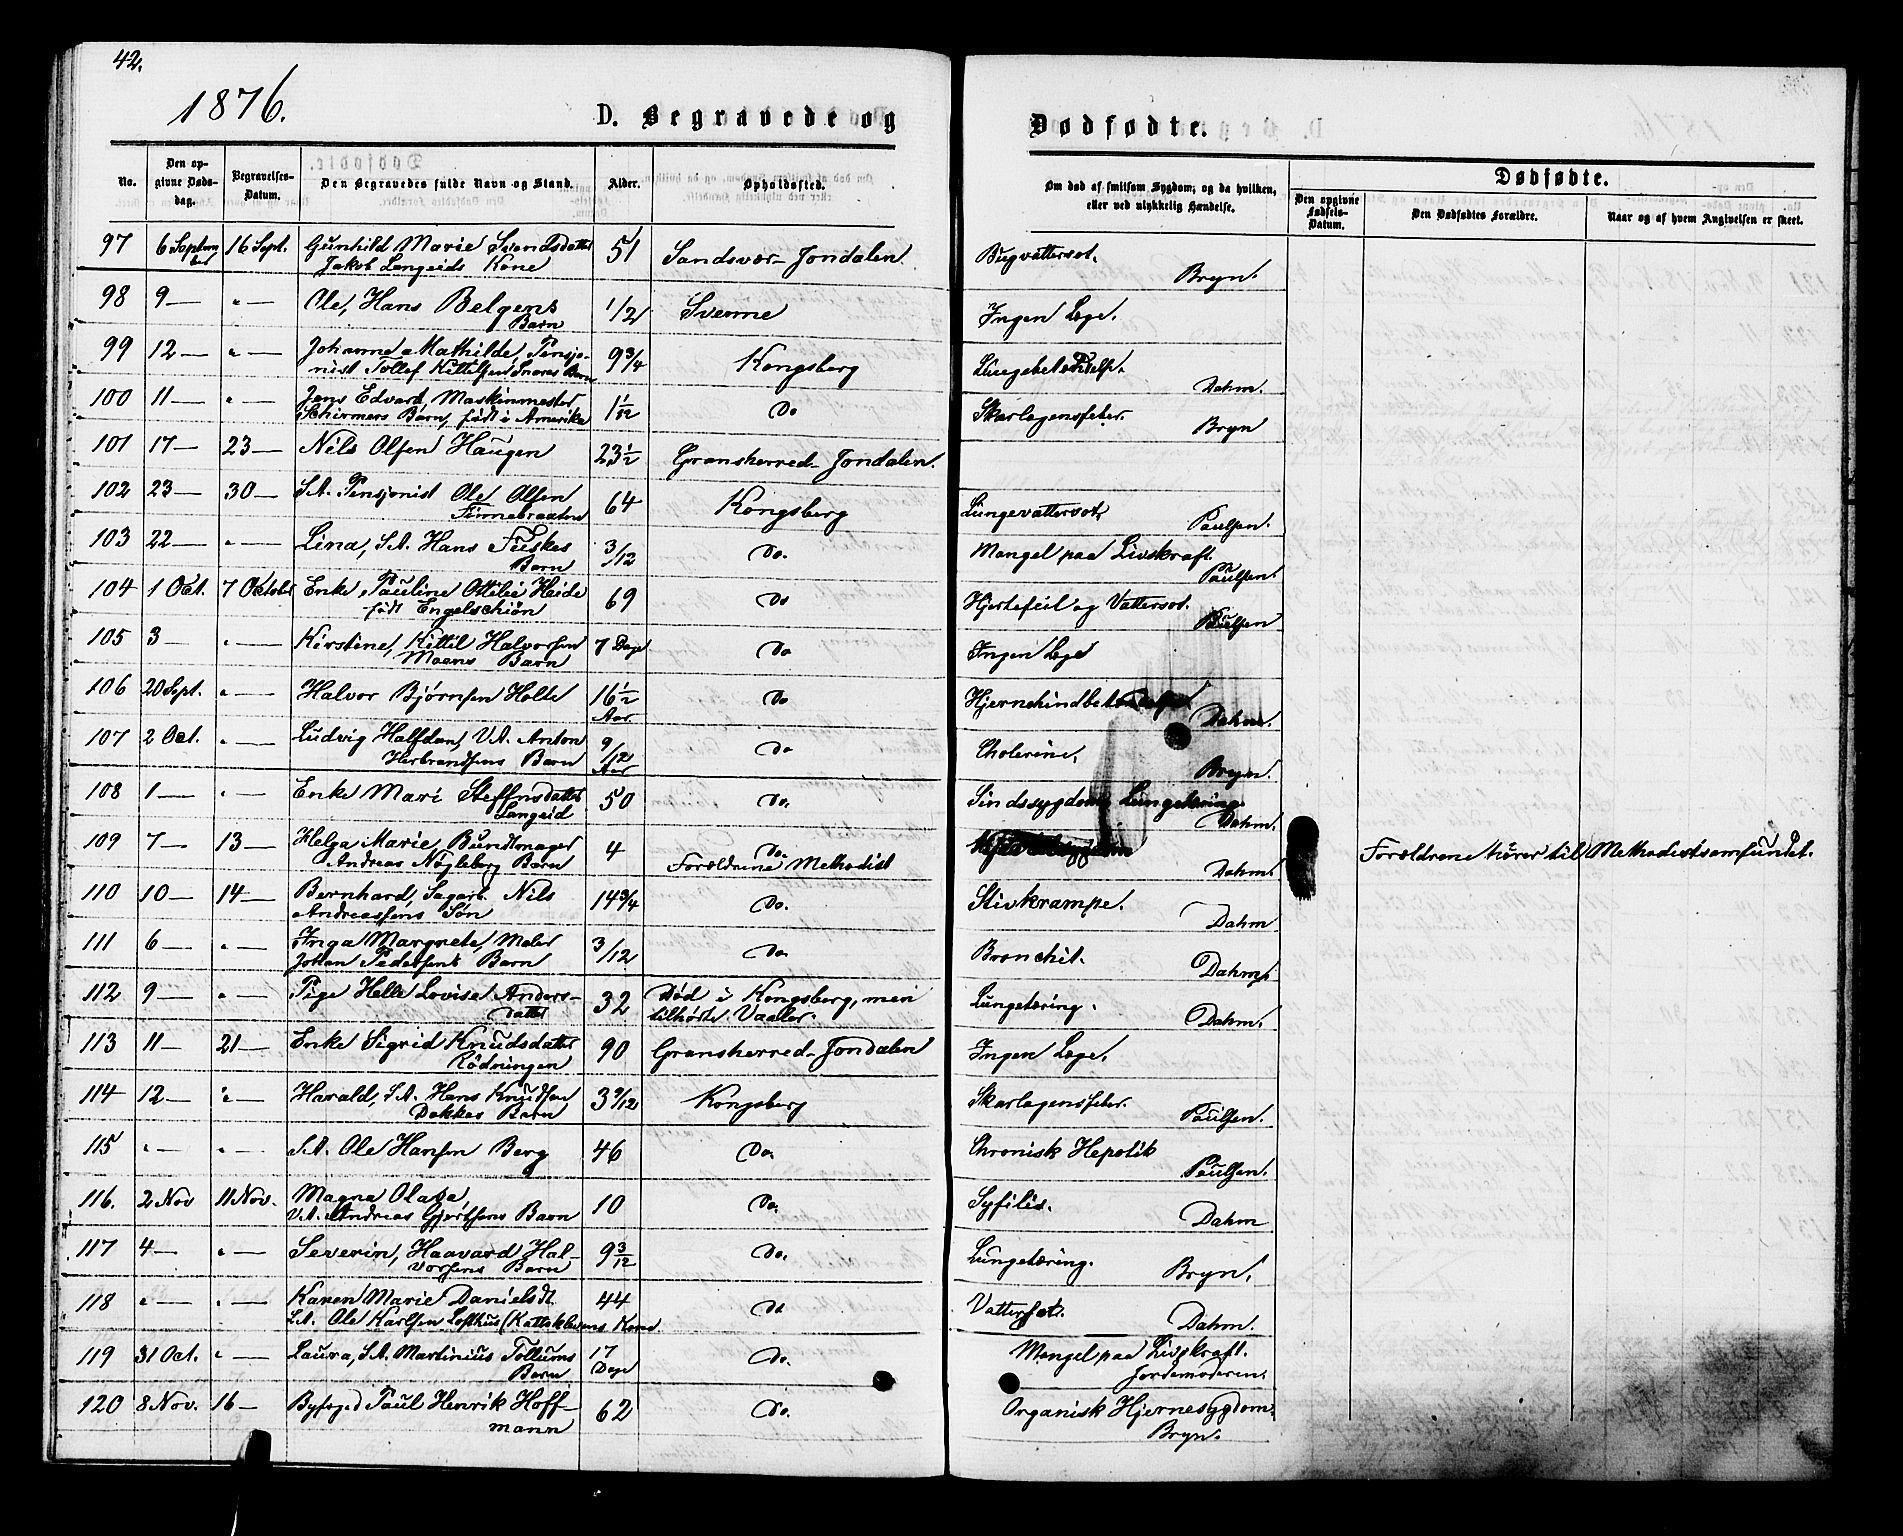 42.
1876.
D. Begravede og
Dødfødte.
No.
Den opgivne Dødsdag.
Begravelses-Datum.
Den Begravedes fulde Navn og Stand.
Alder.
Opholdssted.
Om død af smitsom Sygdom, og da hvilken, eller ved ulykkelig Hændelse.
Dødfødte.
Den opgivne Fødsels-Datum.
Den Dødfødtes Forældre.
Naar og af hvem Angivelsen er skeet.
97 6 September 16 Sept. Gunhild Marie Svendsdatter 51 Sandsvær-Jondalen. Bugvattersot.
Jakob Langeids Kone Bryn.
98 9 — " — Ole, Hans Belgens 1/2 Svenne Ingen Læge.
Barn
99 12 — " — Johanne Mathilde, Pensjo- 9 3/4 Kongsberg Lungebetændelse.
nist Tollef Kittilsen Barn Dahm.
100 11 — " — Jens Edvard, Maskinmester 1 1/12 Do Skarlagensfeber.
Schirmers Barn, født i Amerika Bryn
101 17 — 23 — Nils Olsen Haugen 23 1/2 Gransherred-Jondalen.
102 23 — 30 — S.A. Pensjonist Ole Olsen 64 Kongsberg Lungevattersot,
Paulsen.
103 22 — " — Lina, S.A. Hans Fiskes 3/12 Do. Mangel paa Livskraft.
Barn Paulsen.
104 1 Oct. 7 October Enke Pauline Ottilie Heide 69 Do Hjertefeil og Vattersot.
født Engelschiøn Paulsen
105 3 — " — Kirstine, Kittil Halvorsen 7 Dage Do Ingen Læge
Moens Barn
106 20 Sept. " — Halvor Bjørnsen Holte 16 1/2 Aar Do
Dahm.
107 2 Oct. " — Ludvig Halfdan, V.A. Anton 9/12 Aar Do Cholerine,
Herbrandsens Barn Bryn.
108 1 — " — Enke Mari Steffensdatter 50 Do. Sindssygdom, Lungetæring.
Langeid Dahm.
109 7 — 13 — Helga Marie, Bundtmager 4 Do.
Andreas Nøgleberg Barn Forældrene Methodist Dahm. Forældrene hører til Methodistsamfundet.
110 10 — 14 — Bernhard, Sagarb. Nils 14 3/4 Do. Stivkrampe.
Andreassens Søn Dahm
111 6 — " — Inga Margrete, Maler 3/12 Do. Bronchit.
Johan Pedersens Barn Dahm.
112 9 — " — Pige Helle Lovise Anders- 32 Død i Kongsberg, men Lungetæring.
datter tilhørte Vaaler. Dahm.
113 11 — 21 — Enke Sigrid Knudsdatter 90 Gransherred-Jondalen Ingen Læge.
Rödningen
114 12 — " — Harald, S.A. Hans Knudsen 3 9/12 Kongsberg Skarlagensfeber.
Dokkes Barn Paulsen.
115 " — " — S.A. Ole Hansen Berg 46 Do. Chronisk Hepatit
Paulsen.
116. 2 Nov 11 Nov. Magna Olava, 10 Do. Syfilis.
V.A. Andreas Gjertsens Barn Dahm
117 4 — " — Severin, Haavard Hal- 9 3/12 Do. Lungetæring.
vorsens Barn Bryn.
118 " — " — Karen Marie Danielsdt. 44 Do Vattersot.
S.A. Ole Karlsen Lofthus (Katteklevens Kone. Dahm.
119 31 Oct. " — Laura, S.A. Martinius Tollums 17 Dage Do. Mangel paa Livskraft.
Barn Jordemoderen.
120 8 Nov. 16 — Byfoged Paul Henrik Hoff- 62 Do. Organisk Hjernesygdom.
mann Bryn.